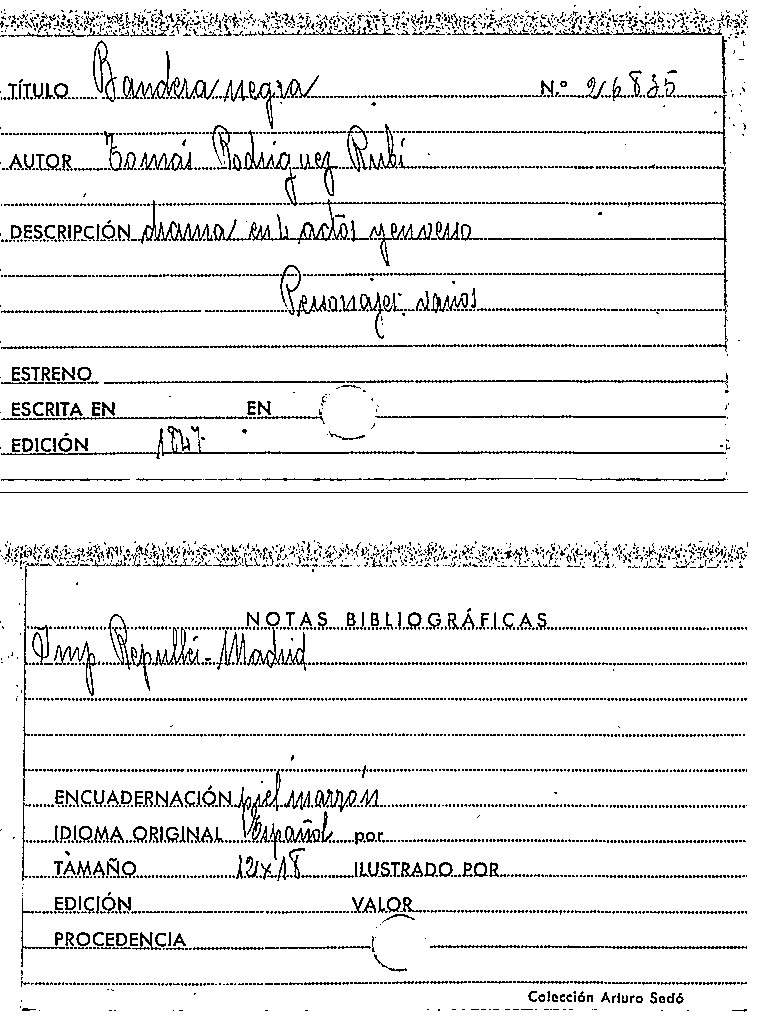 TÍTULO Bandera negra N.º 26835
AUTOR Tomás Rodriguez Rubí
DESCRIPCIÓN drama en 4 actos y en verso
Personajes: varios
ESTRENO
ESCRITA EN EN
EDICIÓN 1847
NOTAS BIBLIOGRÁFICAS
Imp Repullés-Madrid
ENCUADERNACIÓN piel marrón
IDIOMA ORIGINAL Español por
TAMAÑO 12x18 ILUSTRADO POR
EDICIÓN VALOR
PROCEDENCIA
Colección Arturo Sedó